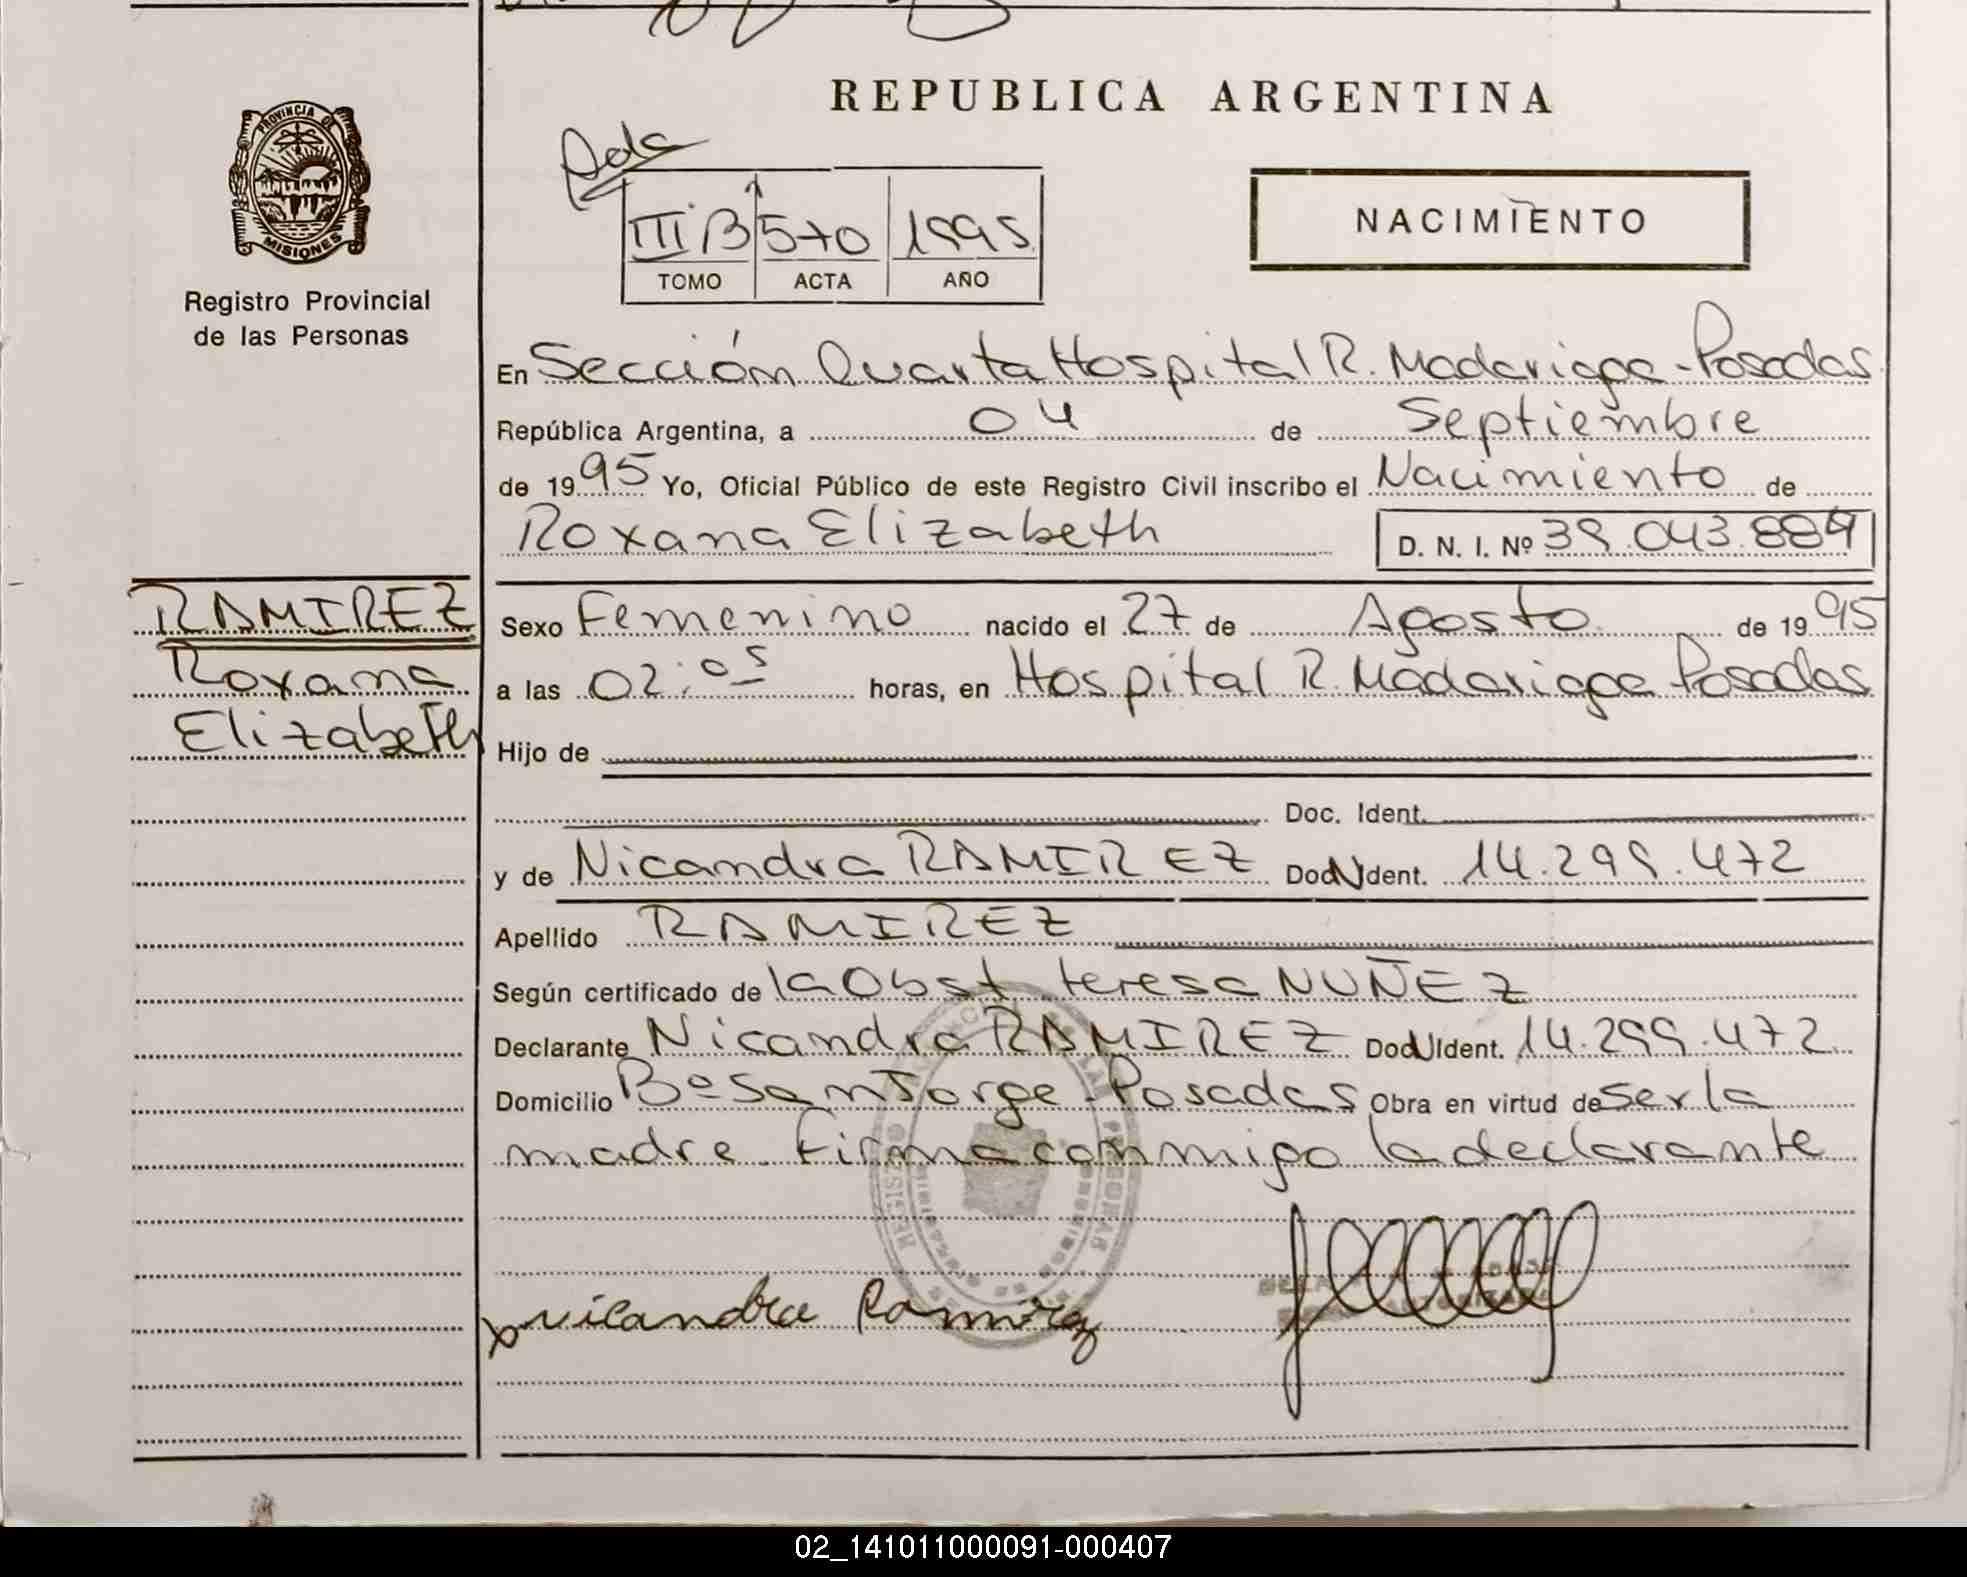 REPUBLICA ARGENTINA
PROVINCIA DE
MISIONES
Registro Provincial
de las Personas
III B 570 1995
TOMO ACTA AÑO
NACIMIENTO
En Sección Quarta Hospital R. Madariaga - Posadas
República Argentina, a 04 de Septiembre
de 1995 Yo, Oficial Público de este Registro Civil inscribo el Nacimiento de
Roxana Elizabeth D. N. I. Nº 39.043.884
RAMIREZ
Roxana
Elizabeth
Sexo Femenino nacido el 27 de Agosto de 1995
a las 02:05 horas, en Hospital R. Madariaga Posadas
Hijo de
Doc. Ident.
y de Nicandra RAMIREZ Doc. Ident. 14.299.472
Apellido RAMIREZ
Según certificado de la Obst teresa NUÑEZ
Declarante Nicandra RAMIREZ Doc. Ident. 14.299.472
Domicilio Bº San Jorge - Posadas Obra en virtud de ser la
madre. Firma conmigo la declarante
Nicandra Ramirez
02_141011000091-000407